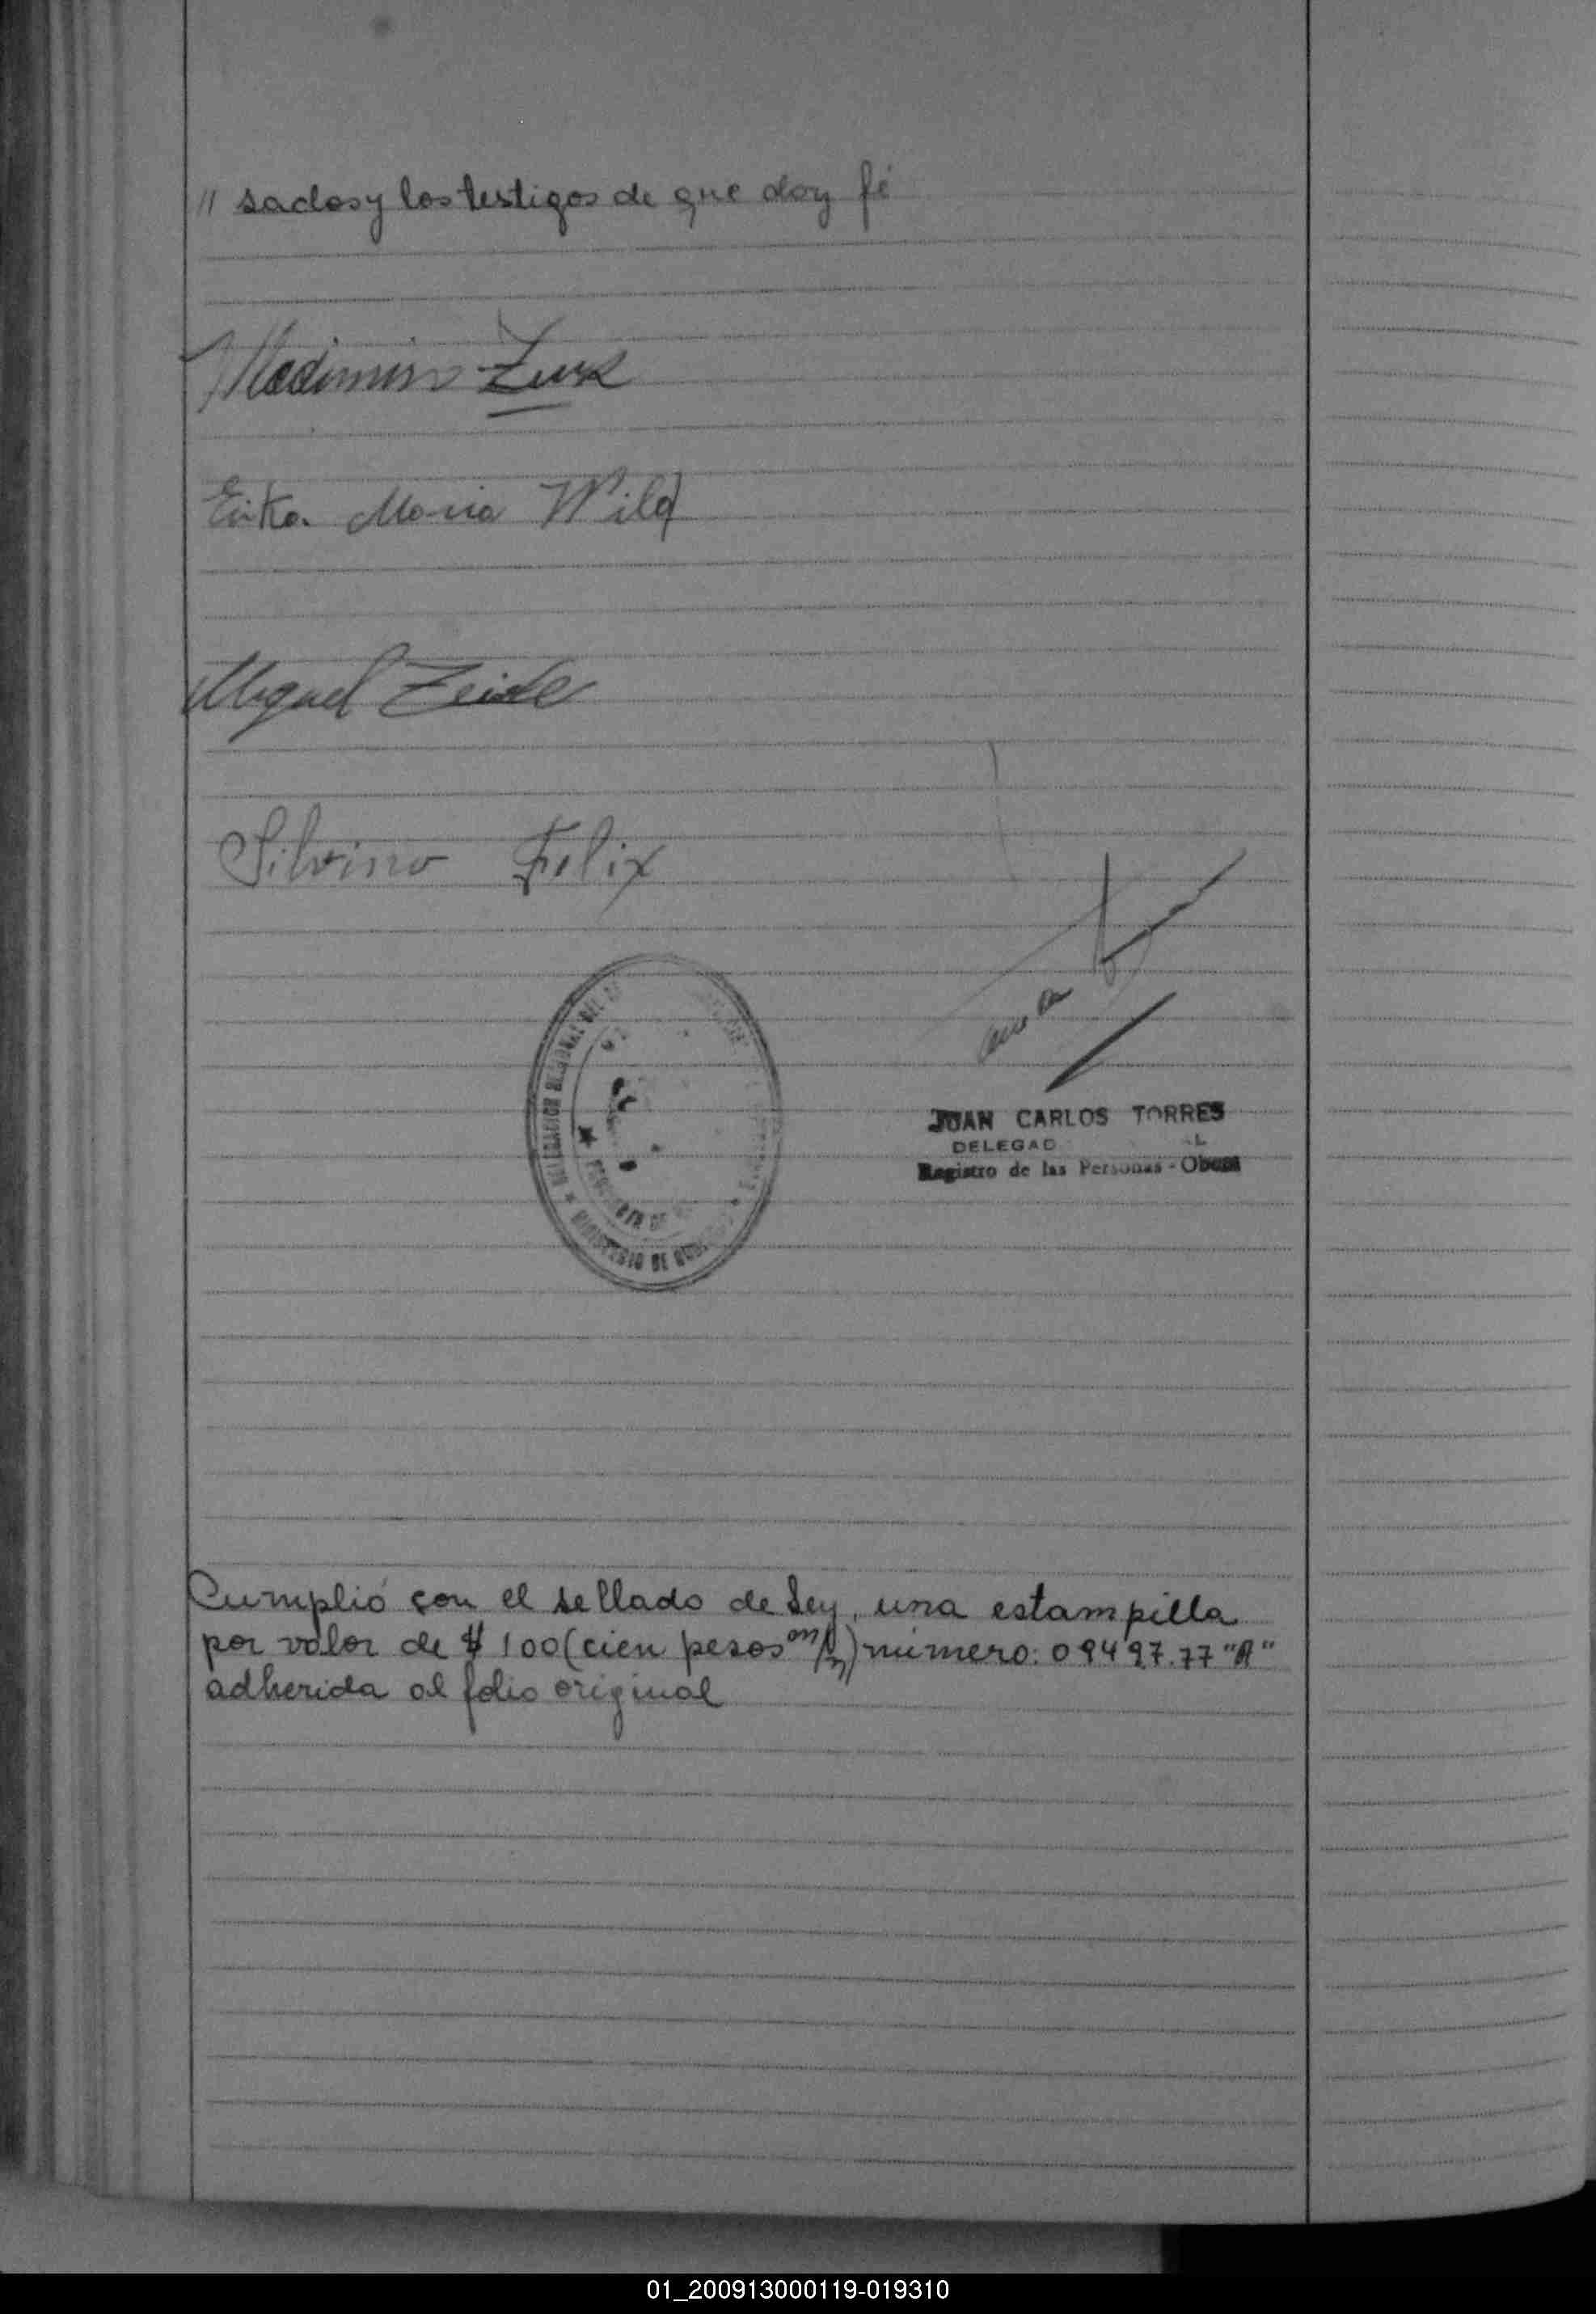 // sados y los testigos de que doy fé
Vladimiro Zuk
Erika Maria Wild
Miguel
Silvino Felix
JUAN CARLOS TORRES
DELEGAD
Registro de las Personas - Obera
MINISTERIO DE
Cumplió con el sellado de Ley, una estampilla
por valor de $ 100 (cien pesos m/n) número: 09497.77 "A"
adherida al folio original
01_200913000119-019310